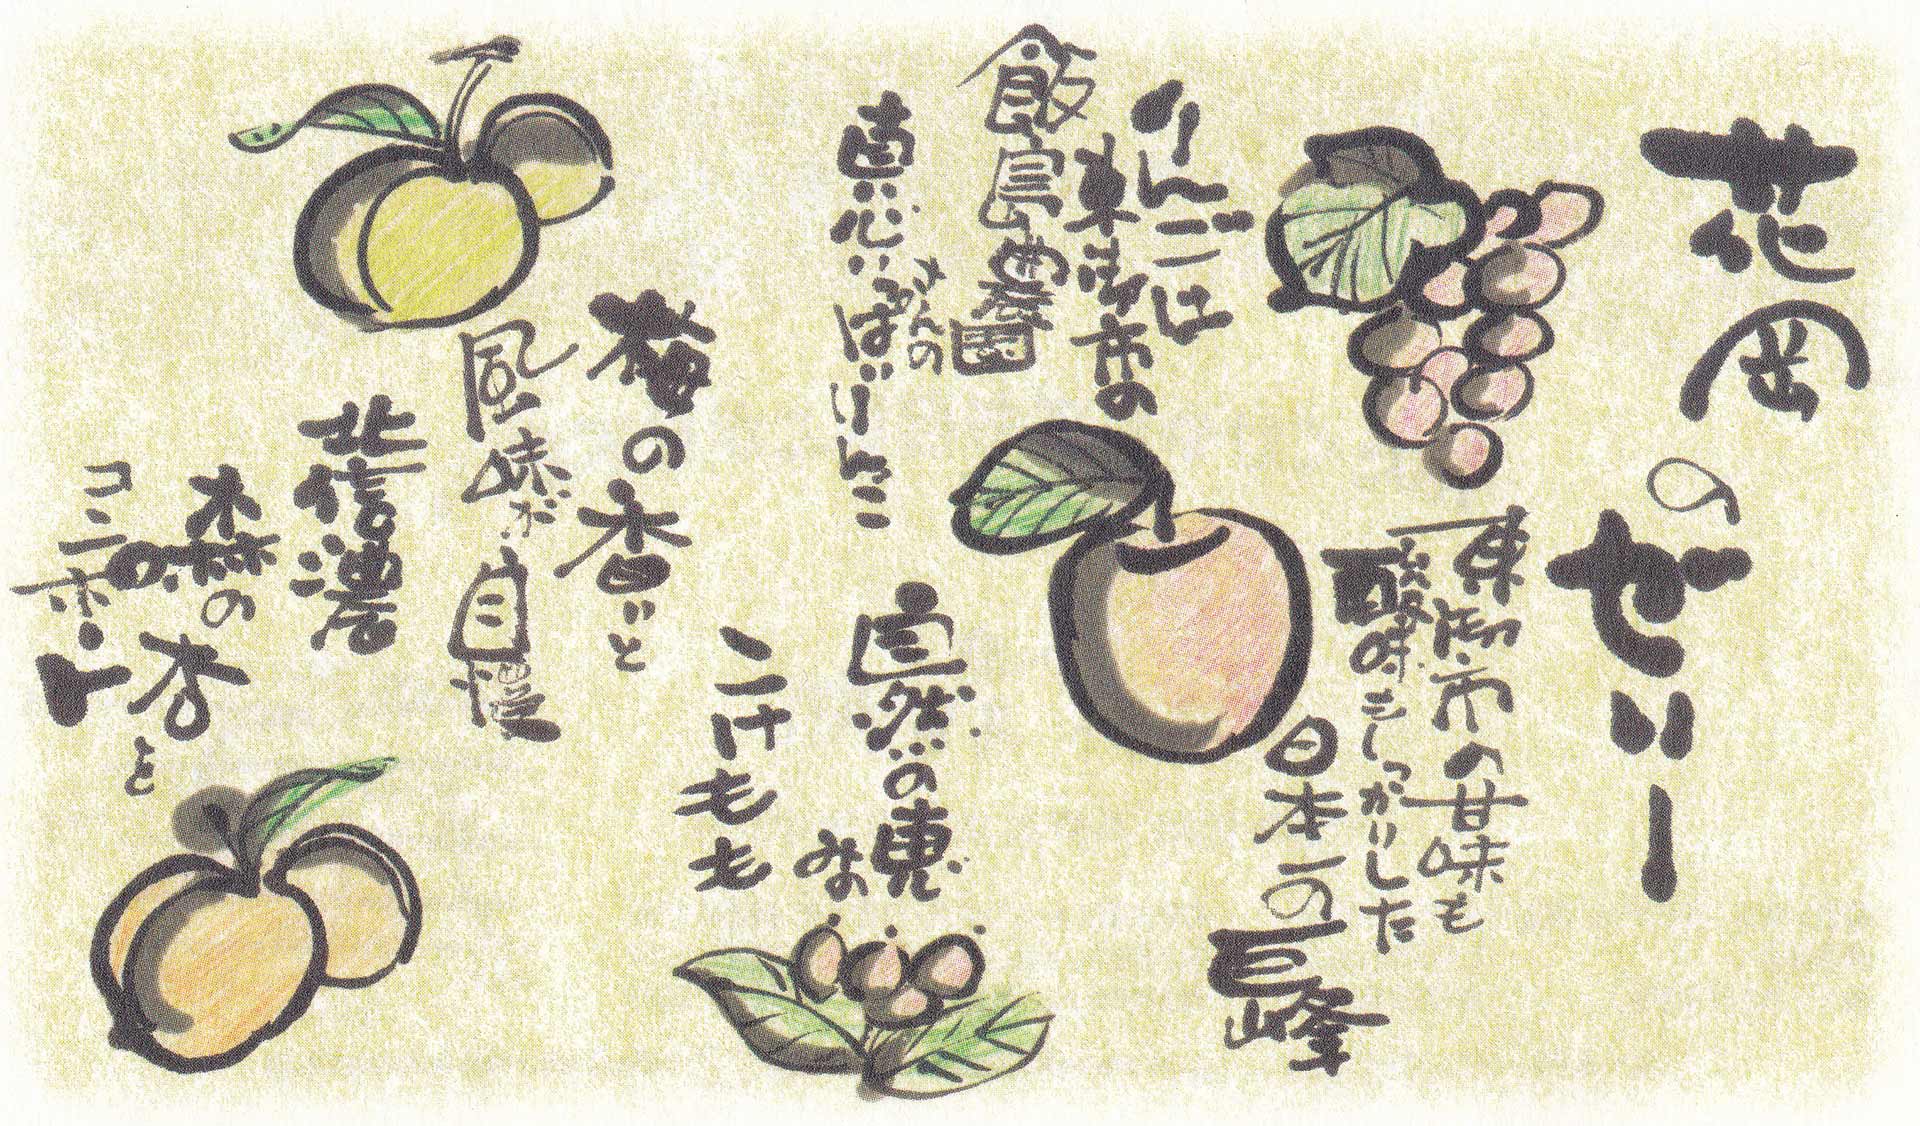 花岡のぜりー
東御市の甘味も
酸味もしっかりした
日本一の
巨峰
りんごは
東御市の
飯島農園
さんの
真心いっぱいりんご
自然の恵み
こけもも
梅の香りと
風味が
自慢
北信濃
森の杏を
コンポート